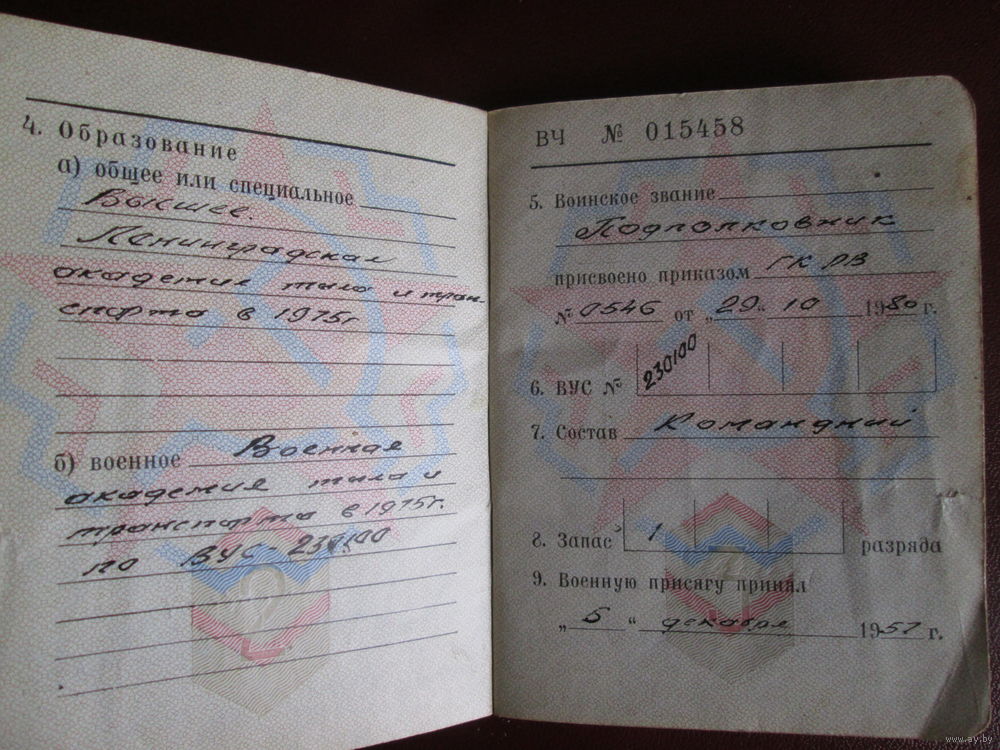 4. Образование
а) общее или специальное
Высшее.
Ленинградская
академия тыла и тран
спорта в 1975г
б) военное Военная
академия тыла и
транспорта в 1975г.
по ВУС-230100
ВЧ № 015458
5. Воинское звание
Подполковник
присвоено приказом ГК РВ
№ 0546 от „29“ 10 1980 г.
6. ВУС № 230100
7. Состав Командный
8. Запас 1 разряда
9. Военную присягу принял
„5“ декабря 1957 г.
www.ay.by